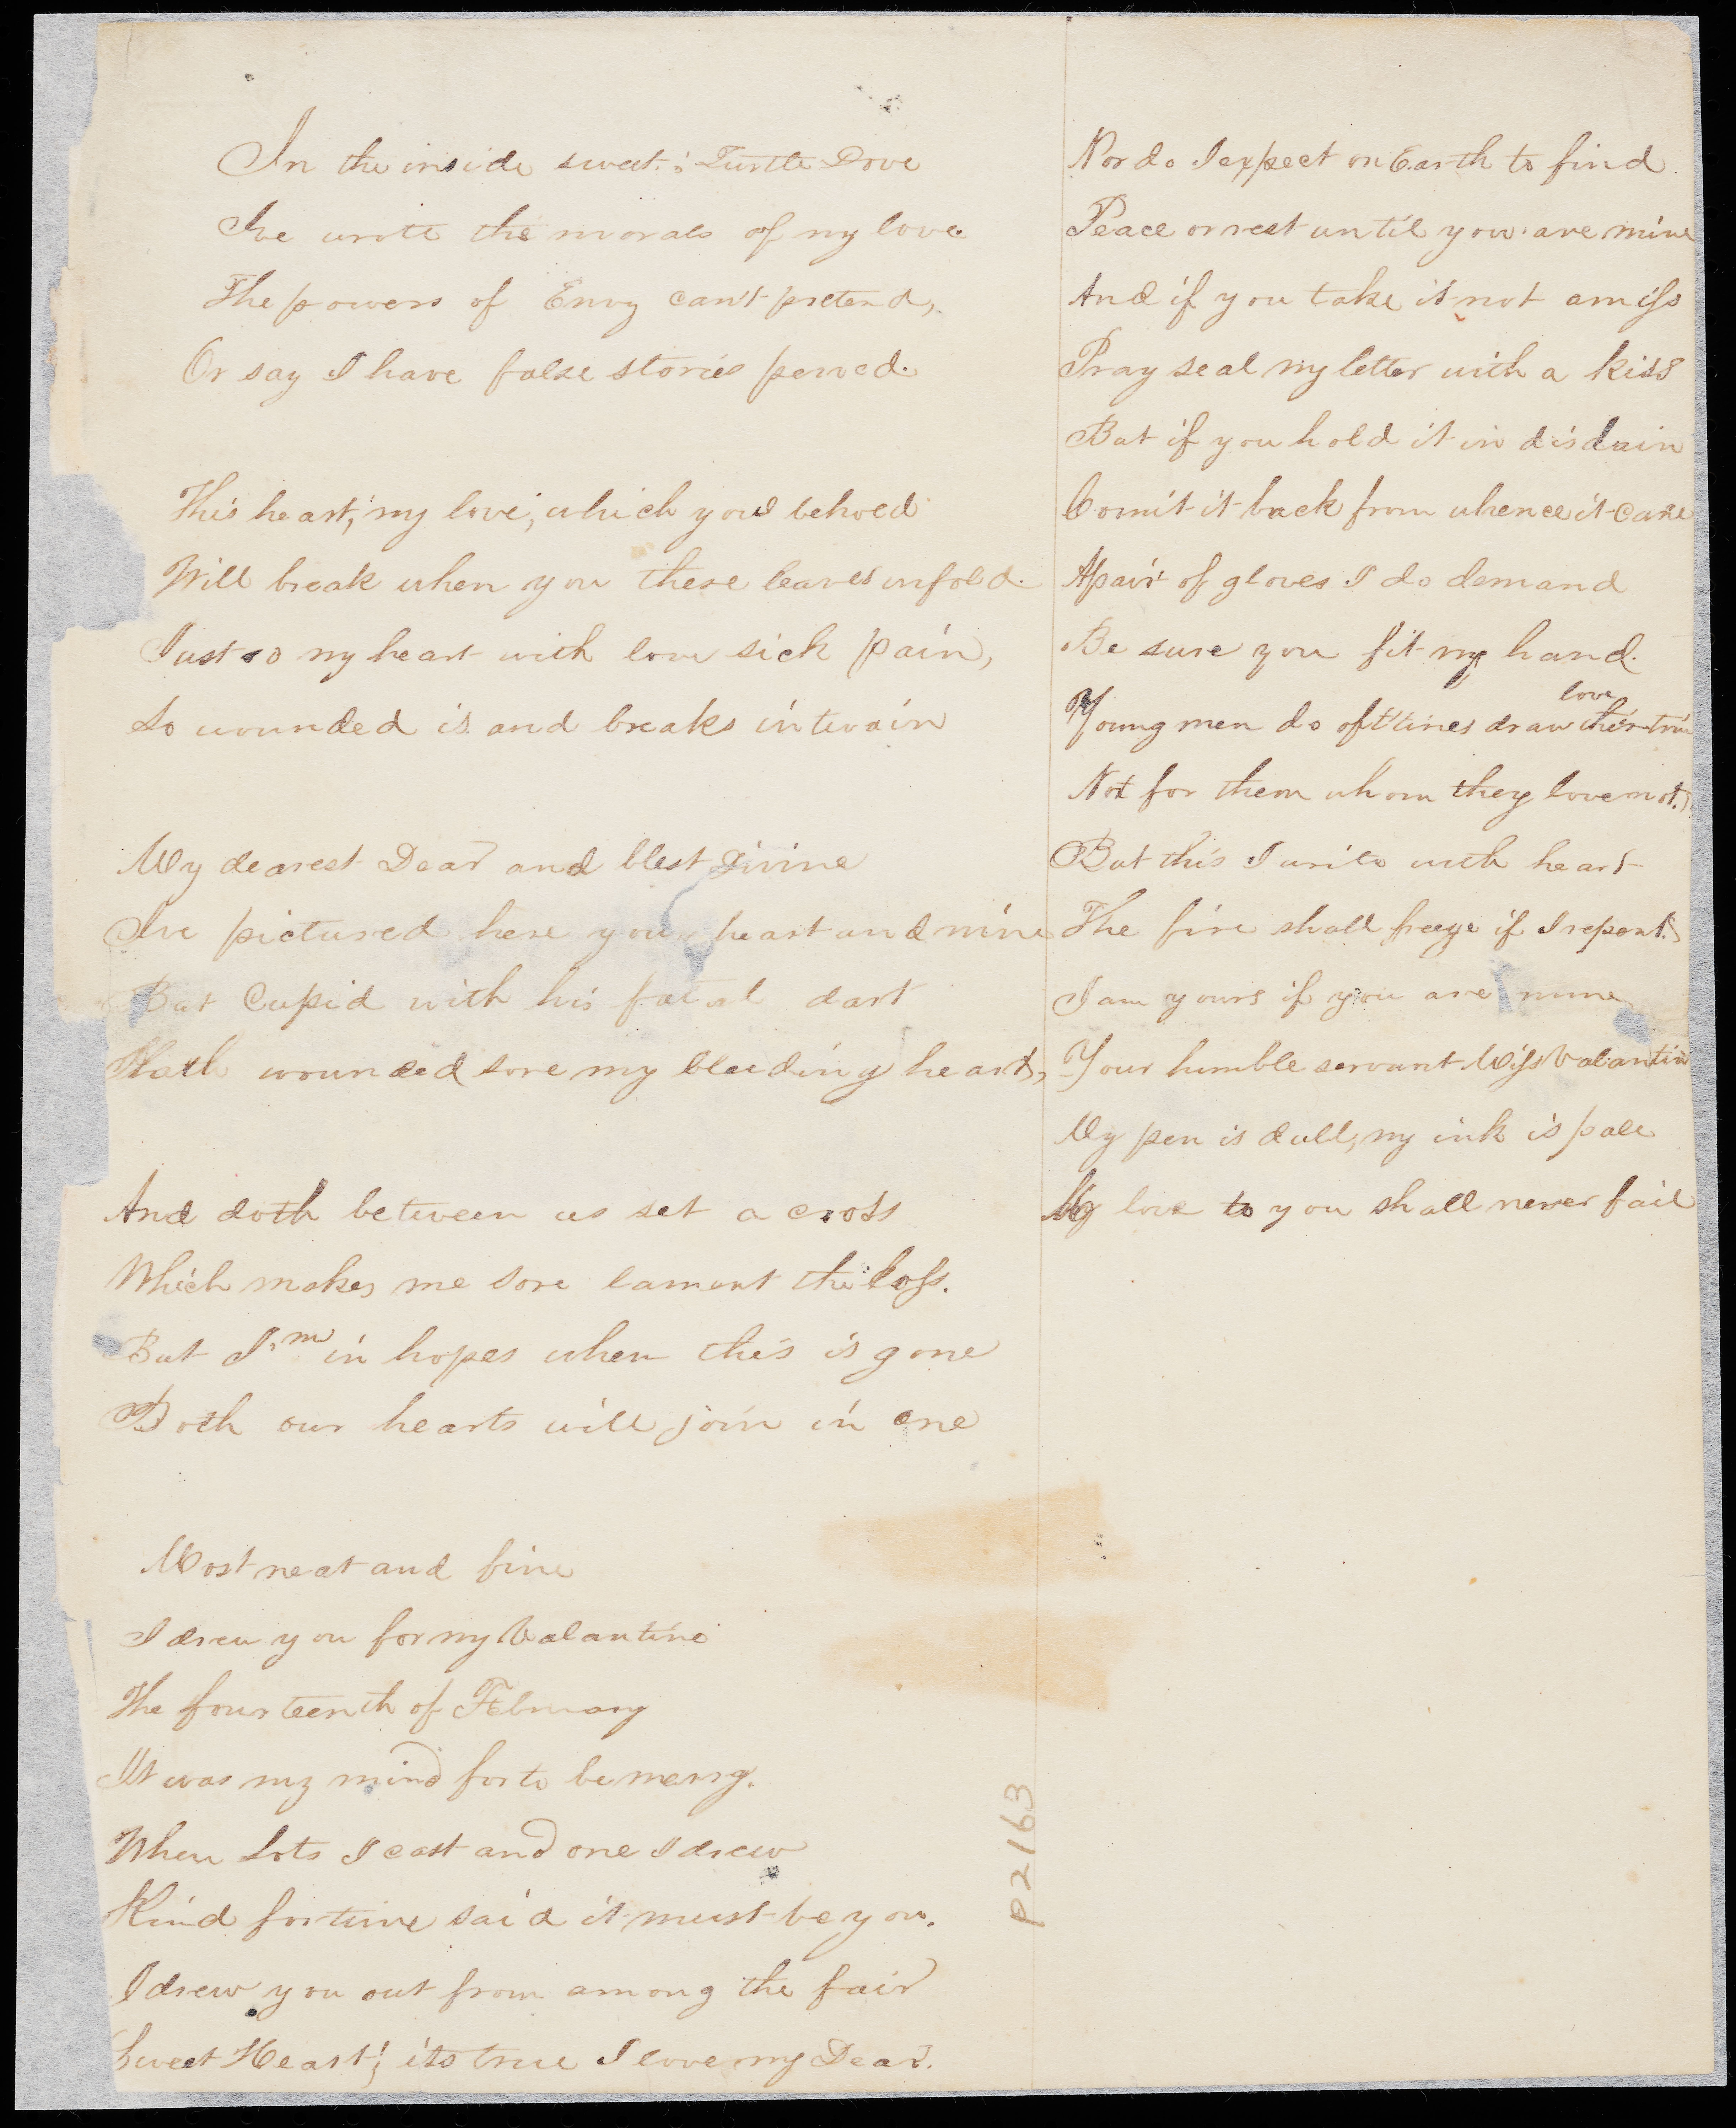 In the inside sweet Turtle Dove
Ive wrote the morals of my love
The powers of Envy can't pretend,
Or say I have false stories penned.
This heart, my love, which you behold
Will break when you these leaves unfold.
Just so my heart with love sick pain,
So wounded is and breaks in twain
My dearest Dear and blest Divine
Ive pictured here your heart and mine
But Cupid with his fatal dart
Hath wounded sore my bleeding heart,
And doth between us set a cross
Which makes me sore lament the loss.
But I'm in hopes when this is gone
Both our hearts will join in one
Most neat and fine
I drew you for my Valantine
The fourteenth of February
It was my mind for to be merry.
When Lots I cast and one I drew
Kind fortune said it must be you.
I drew you out from among the fair
Sweet Heart; its true I love my Dear.
Nor do I expect on Earth to find
Peace or rest until you are mine
And if you take it not amiss
Pray seal my letter with a kiss
But if you hold it in disdain
Comit it back from whence it came
A pair of gloves I do demand
Be sure you fit my hand.
love
Young men do oft times draw their true
Not for them whom they love not.
But this I write with heart
The fire shall freeze if I repent.
I am yours if you are mine
Your humble servant Miss Valantin
My pen is dull, my ink is pale
My love to you shall never fail
P2163